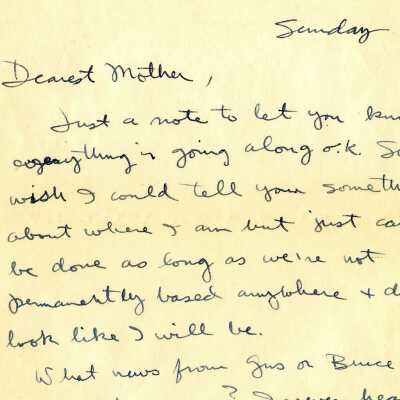 Sunday
Dearest Mother,
Just a note to let you
everything's going along o.k.
wish I could tell you
about where I am but just
be done as long as we're not
permanently based anywhere +
look like I will be.
What news from Gus or Bruce
? I never